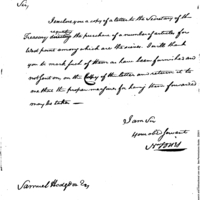 Sir,
I enclose you a copy of a letter to the Secretary of the
Treasury directing the purchase of a number of articles for
West point among which are the
I will thank
you to mark such of them as have been furnished and
not sent on on the Copy of the letter and return it to
me that the proper measures for being them forwarded
may be taken —
I am Sir
your obt Servant
Samuel Hodgdon Esq